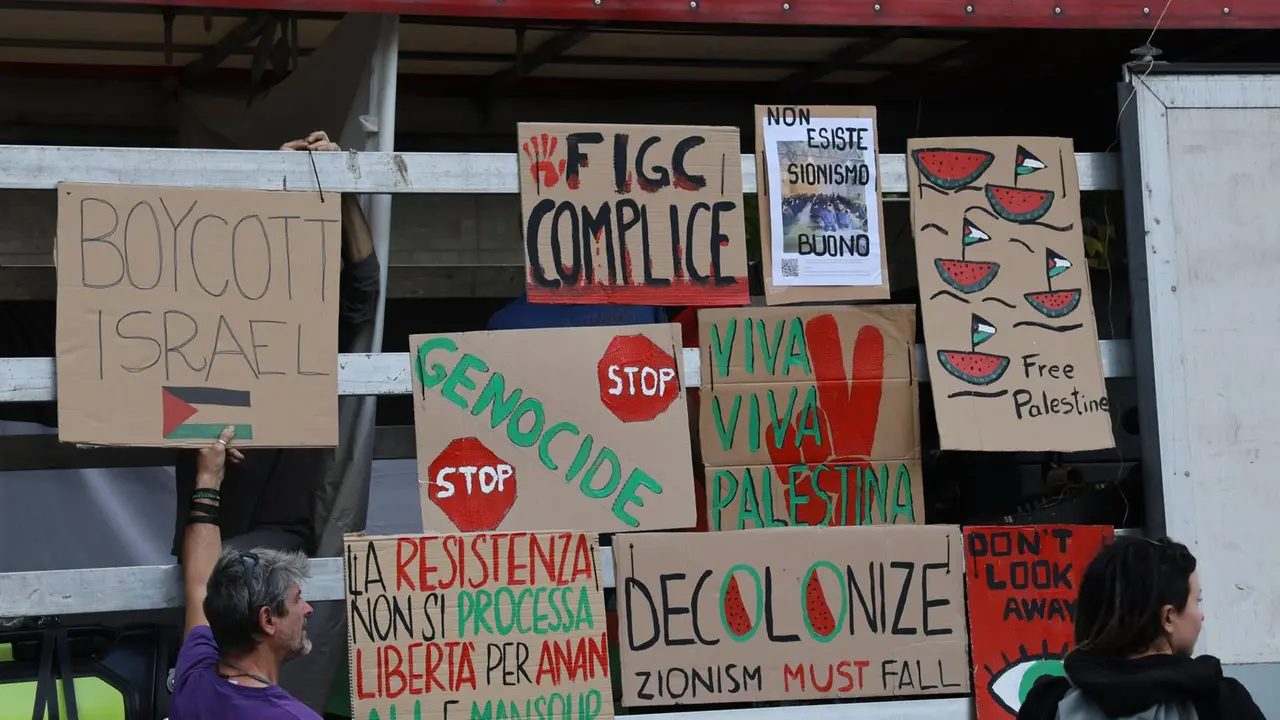 BOYCOTT
ISRAEL
FIGC
COMPLICE
NON
ESISTE
SIONISMO
BUONO
Free
Palestine
GENOCIDE
STOP
STOP
VIVA
VIVA
PALESTINA
LA RESISTENZA
NON SI PROCESSA
LIBERTÀ PER ANAN
ALI E MANSOUR
DECOLONIZE
ZIONISM MUST FALL
DON'T
LOOK
AWAY